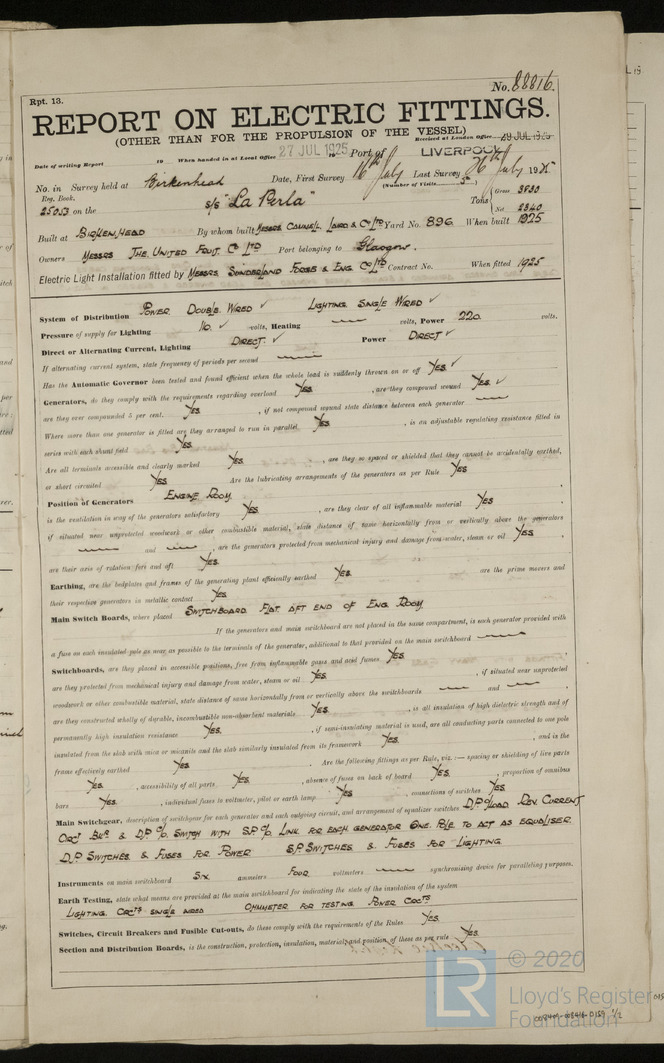 No. 88816.
Rpt. 13.
REPORT ON ELECTRIC FITTINGS.
(OTHER THAN FOR THE PROPULSION OF THE VESSEL)
Received at London Office 29 JUL 1925
Date of writing Report 19 When handed in at Local Office 27 JUL 1925 19 Port of LIVERPOOL
No. in Survey held at Birkenhead Date, First Survey 16th July Last Survey 26th July 1925
Reg. Book. (Number of Visits 5)
25053 on the S/S "La Perla" Tons { Gross 3830
Net 2340
Built at BIRKENHEAD By whom built MESSRS CAMMELL LAIRD & Co LTD Yard No. 896. When built 1925
Owners MESSRS THE UNITED FRUIT Co LTD Port belonging to Glasgow.
Electric Light Installation fitted by MESSRS SUNDERLAND FORGE & ENG. Co LTD Contract No. When fitted 1925
System of Distribution POWER DOUBLE WIRED ✓ LIGHTING SINGLE WIRED ✓
Pressure of supply for Lighting 110 ✓ volts, Heating — volts, Power 220 volts.
Direct or Alternating Current, Lighting DIRECT ✓ Power DIRECT ✓
If alternating current system, state frequency of periods per second —
Has the Automatic Governor been tested and found efficient when the whole load is suddenly thrown on or off YES ✓
Generators, do they comply with the requirements regarding overload YES , are they compound wound YES ✓
are they over compounded 5 per cent. YES , if not compound wound state distance between each generator —
Where more than one generator is fitted are they arranged to run in parallel YES , is an adjustable regulating resistance fitted in
series with each shunt field YES
Are all terminals accessible and clearly marked YES , are they so spaced or shielded that they cannot be accidentally earthed,
or short circuited YES Are the lubricating arrangements of the generators as per Rule YES
Position of Generators ENGINE ROOM
is the ventilation in way of the generators satisfactory YES , are they clear of all inflammable material YES
if situated near unprotected woodwork or other combustible material, state distance of same horizontally from or vertically above the generators
— and — , are the generators protected from mechanical injury and damage from water, steam or oil YES ,
are their axis of rotation fore and aft YES
Earthing, are the bedplates and frames of the generating plant efficiently earthed YES are the prime movers and
their respective generators in metallic contact YES
Main Switch Boards, where placed SWITCHBOARD FLAT AFT END OF ENG. ROOM
If the generators and main switchboard are not placed in the same compartment, is each generator provided with
a fuse on each insulated pole as near as possible to the terminals of the generator, additional to that provided on the main switchboard —
Switchboards, are they placed in accessible positions, free from inflammable gases and acid fumes YES
are they protected from mechanical injury and damage from water, steam or oil YES , if situated near unprotected
woodwork or other combustible material, state distance of same horizontally from or vertically above the switchboards — and — ,
are they constructed wholly of durable, incombustible non-absorbent materials YES , is all insulation of high dielectric strength and of
permanently high insulation resistance YES , if semi-insulating material is used, are all conducting parts connected to one pole
insulated from the slab with mica or micanite and the slab similarly insulated from its framework YES , and is the
frame effectively earthed YES . Are the following fittings as per Rule, viz.:— spacing or shielding of live parts
YES , accessibility of all parts YES , absence of fuses on back of board YES , proportion of omnibus
bars YES , individual fuses to voltmeter, pilot or earth lamp YES , connections of switches YES
Main Switchgear, description of switchgear for each generator and each outgoing circuit, and arrangement of equalizer switches D.P. O/LOAD REV. CURRENT
CRCT BKR & D.P. C/O SWITCH WITH S.P. C/O LINK FOR EACH GENERATOR ONE POLE TO ACT AS EQUALISER.
D.P. SWITCHES & FUSES FOR POWER S.P. SWITCHES & FUSES FOR LIGHTING
Instruments on main switchboard SIX ammeters FOUR voltmeters — synchronising device for paralleling purposes.
Earth Testing, state what means are provided at the main switchboard for indicating the state of the insulation of the system
LIGHTING CRCTS SINGLE WIRED OHMMETER FOR TESTING POWER CRCTS
Switches, Circuit Breakers and Fusible Cut-outs, do these comply with the requirements of the Rules YES
Section and Distribution Boards, is the construction, protection, insulation, material, and position of these as per rule YES
© 2020
Lloyd's Register
Foundation
LR